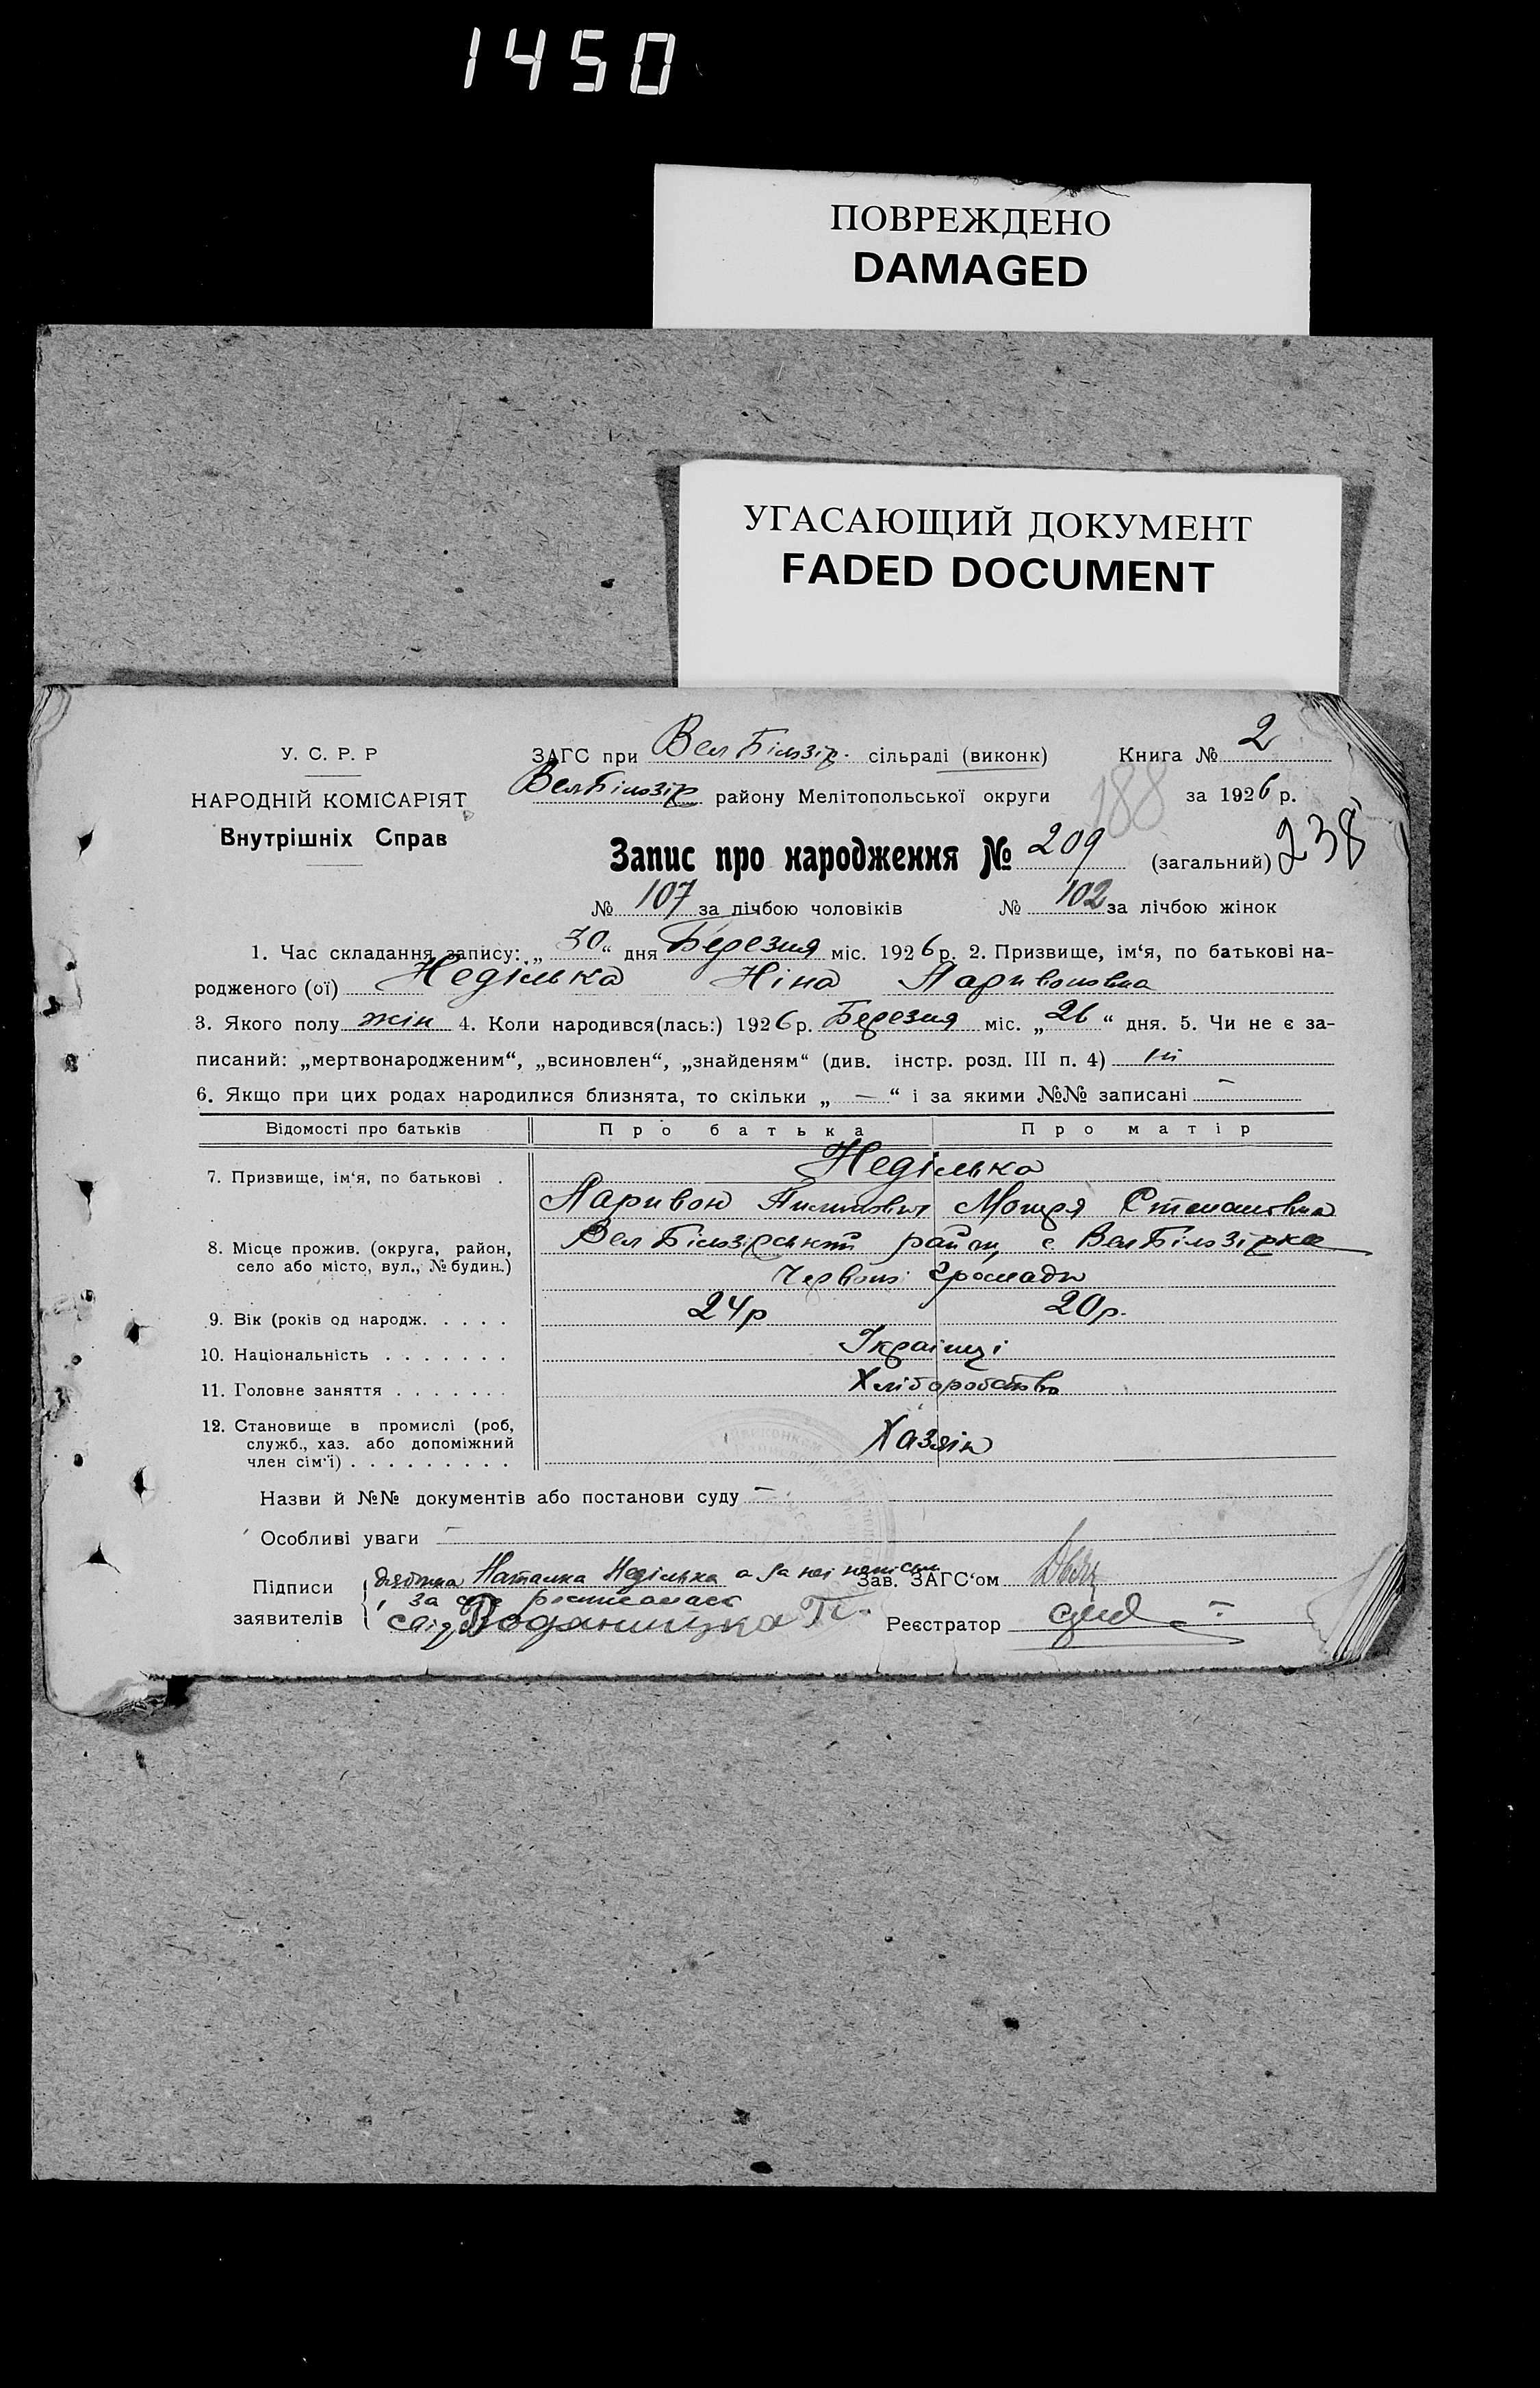 1450
ПОВРЕЖДЕНО
DAMAGED
УГАСАЮЩИЙ ДОКУМЕНТ
FADED DOCUMENT
У. С. Р. Р
НАРОДНІЙ КОМІСАРІЯТ
Внутрішніх Справ
ЗАГС при Вел Білозір. сільраді (виконк) Книга № 2
ВелБілозір району Мелітопольської округи 188 за 1926 р.
Запис про народження № 209 (загальний) 238
№ 107 за лічбою чоловіків № 102 за лічбою жінок
1. Час складання запису: „30“ дня Березня міс. 1926 р. 2. Призвище, ім‘я, по батькові на-
родженого (ої) Неділька Ніна Ларивоновна
3. Якого полу жін 4. Коли народився(лась:) 1926 р. Березня міс. „26“ дня. 5. Чи не є за-
писаний: „мертвонародженим“, „всиновлен“, „знайденям“ (див. інстр. розд. III п. 4) ні
6. Якщо при цих родах народилися близнята, то скільки „—“ і за якими №№ записані —
Відомості про батьків Про батька Про матір
7. Призвище, ім‘я, по батькові . Неділька
Ларивон Пилипович Мотря Степановна
8. Місце прожив. (округа, район, село або місто, вул., № будин.) Вел Білозірський район, с ВелБілозірка
Червоної Громади
9. Вік (років од народж. . . . . 24р 20р.
10. Національність . . . . . . . Українці
11. Головне заняття . . . . . . . Хліборобство
12. Становище в промислі (роб, служб., хаз. або допоміжний член сім‘ї) . . . . . . . . . Хазяін
Назви й №№ документів або постанови суду —
Особливі уваги —
Підписи заявителів Наталка Неділька а за неї
за
Зав. ЗАГС‘ом
Реєстратор